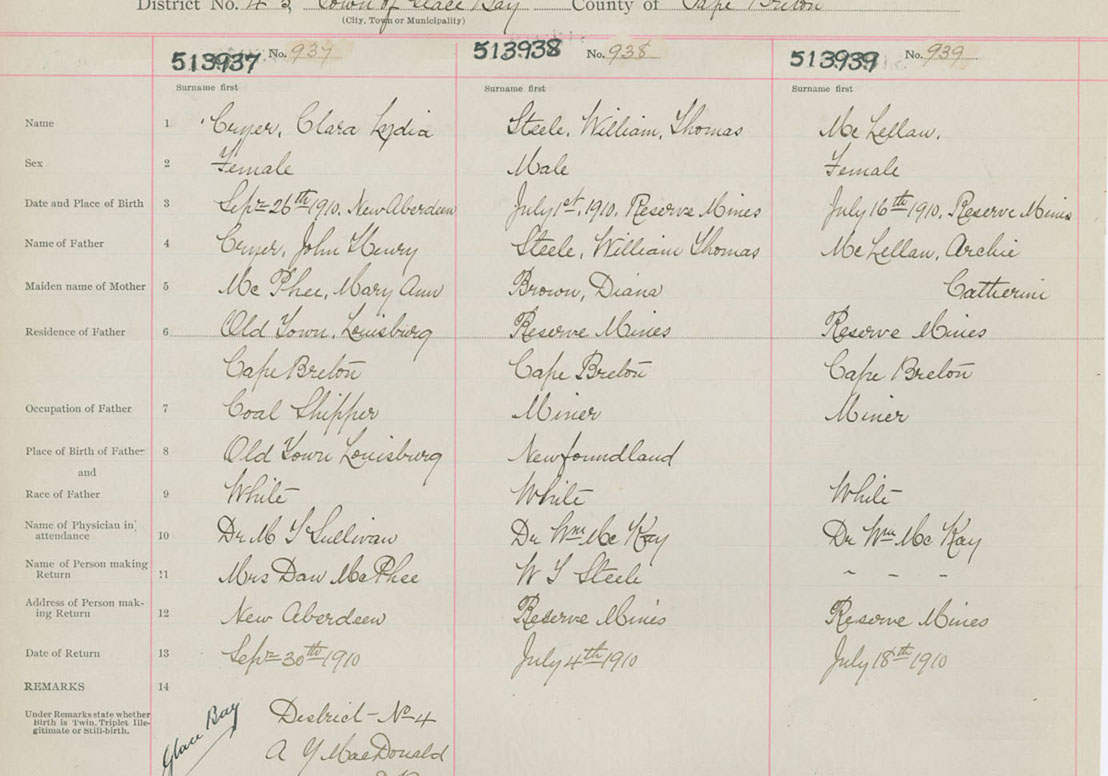 District No. 4 3, Town of Glace Bay County of Cape Breton
(City, Town or Municipality)
513937 No. 937 513938 No. 938 513939 No. 939
Surname first Surname first Surname first
Name 1 Cryer, Clara Lydia Steele, William, Thomas Mc Lellan,
Sex 2 Female Male Female
Date and Place of Birth 3 Sept 26th 1910, New Aberdeen July 1st, 1910, Reserve Mines July 16th 1910, Reserve Mines
Name of Father 4 Cryer, John Henry Steele, William Thomas Mc Lellan, Archie
Maiden name of Mother 5 Mc Phee, Mary Ann Brown, Diana Catherine
Residence of Father 6 Old Town, Louisburg Reserve Mines Reserve Mines
Cape Breton Cape Breton Cape Breton
Occupation of Father 7 Coal Shipper Miner Miner
Place of Birth of Father 8 Old Town Louisburg Newfoundland
and
Race of Father 9 White White White
Name of Physician in
attendance 10 Dr M T Sullivan Dr Wm Mc Kay Dr Wm Mc Kay
Name of Person making
Return 11 Mrs Dan McPhee W T Steele " " "
Address of Person mak-
ing Return 12 New Aberdeen Reserve Mines Reserve Mines
Date of Return 13 Sept 30th 1910 July 4th 1910 July 18th 1910
REMARKS 14
Under Remarks state whether
Birth is Twin, Triplet Ille-
gitimate or Still-birth.
Glace Bay
District No 4
A Y MacDonald